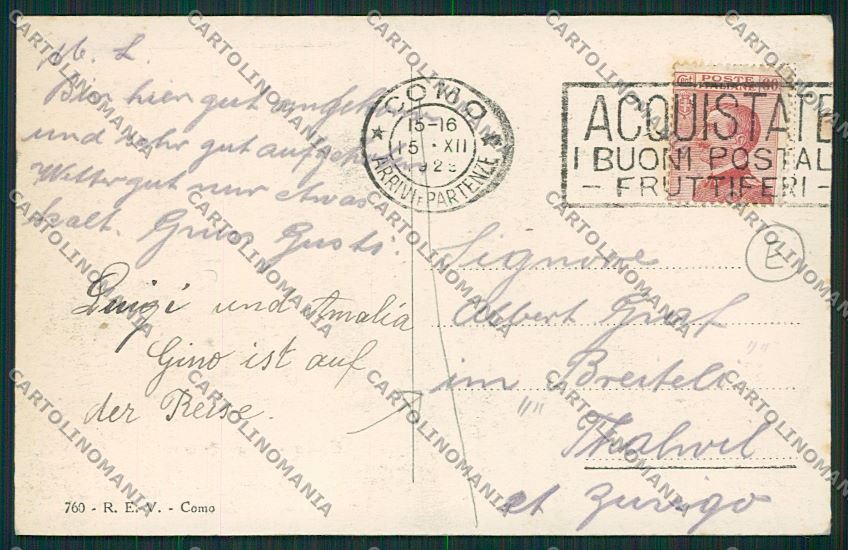 M. L.
Bin hier gut angekommen
und sehr gut aufgehoben
Wetter gut nur etwas
kalt. Gruss Gusti.
Luigi und Amalia
Gino ist auf
der Reise.
760 - R. E. V. - Como
COMO
15-16
15 XII
ARRIVI E PARTENZE
POSTE ITALIANE
ACQUISTATE
I BUONI POSTAL
- FRUTTIFERI -
E
Signore
Albert Graf
im Breiteli
Thalwil
ct Zurigo
CARTOLINOMANIA